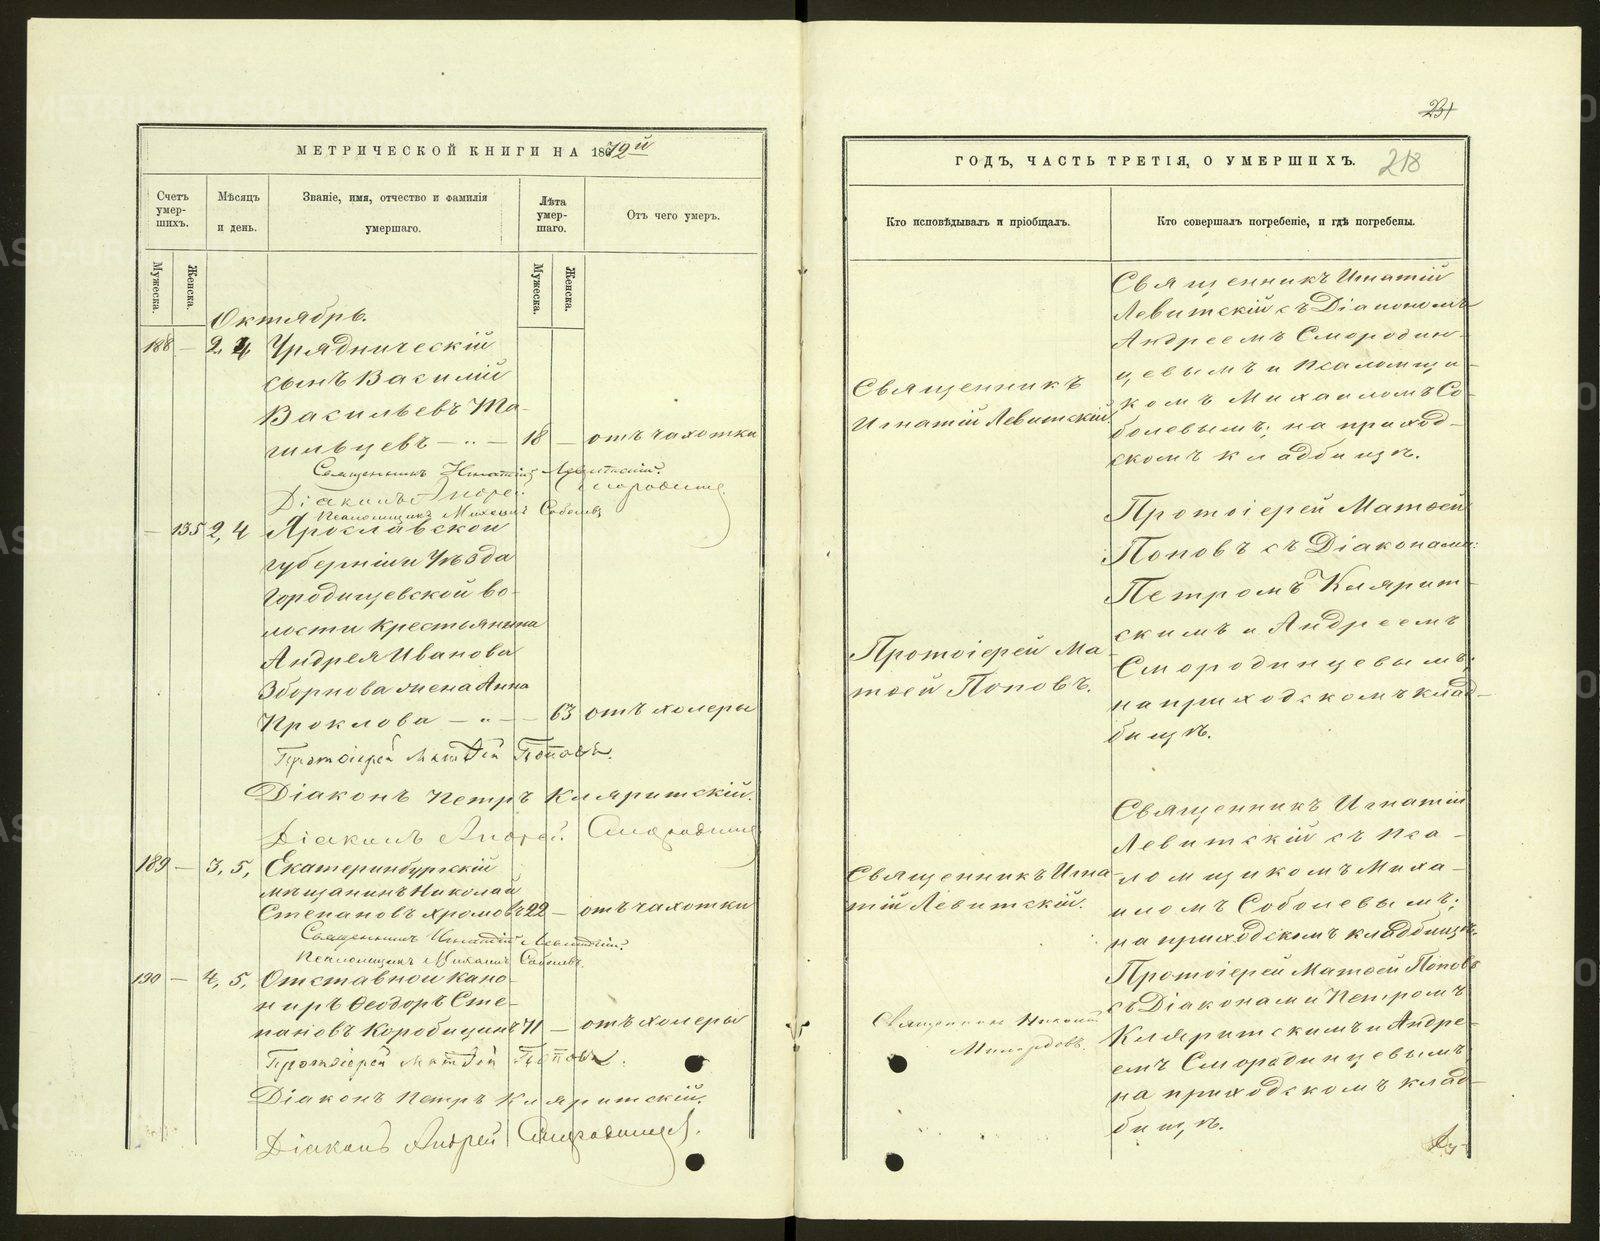 МЕТРИЧЕСКОЙ КНИГИ НА 1872й
Счетъ умер-шихъ.
Мѣсяцъ и день.
Званіе, имя, отчество и фамилія умершаго.
Лѣта умер-шаго.
Отъ чего умеръ.
Мужеска.
Женска.
Мужеска.
Женска.
Октябрь.
188 — 2, 4 Урядническій
сынъ Василій
Васильевъ Та-
гильцевъ — „ — 18 — отъ чахотки
Священникъ Игнатій Левитскій.
Діаконъ Андрей Смородинцевъ.
Псаломщикъ Михаилъ Соболевъ
— 135 2, 4 Ярославской
губерніи и Уѣзда
Городищевской во-
лости крестьянина
Андрея Иванова
Зборнова жена Анна
Проклова — „ — — 63 отъ холеры
Протоіерей Матѳей Поповъ.
Діаконъ Петръ Кляритскій.
Діаконъ Андрей Смородинцевъ
189 — 3, 5, Екатеринбургскій
мѣщанинъ Николай
Степановъ Хромовъ 22 — отъ чахотки
Священникъ Игнатій Левитскій.
Псаломщикъ Михаилъ Соболевъ.
190 — 4, 5, Отставной кано-
ниръ Ѳеодоръ Сте-
пановъ Коробицинъ 71 — отъ холеры
Протоіерей Матѳей Поповъ.
Діаконъ Петръ Кляритскій.
Діаконъ Андрей Смородинцевъ.
231
ГОДЪ, ЧАСТЬ ТРЕТІЯ, О УМЕРШИХЪ.
218
Кто исповѣдывалъ и пріобщалъ.
Кто совершалъ погребеніе, и гдѣ погребены.
Священникъ
Игнатій Левитскій.
Священникъ Игнатій
Левитскій съ Діакономъ
Андреемъ Смородин-
цевымъ и псаломщи-
комъ Михаиломъ Со-
болевымъ; на приход-
скомъ кладбищѣ.
Протоіерей Ма-
тѳей Поповъ.
Протоіерей Матѳей
Поповъ съ Діаконами:
Петромъ Кляритскимъ
и Андреемъ
Смородинцевымъ;
на приходскомъ клад-
бищѣ.
Священникъ Игна-
тій Левитскій.
Священникъ Игнатій
Левитскій съ Пса-
ломщикомъ Миха-
иломъ Соболевымъ;
на приходскомъ кладбищѣ.
Священникъ Николай
Протоіерей Матѳей Поповъ
съ Діаконами Петромъ
Кляритскимъ и Андре-
емъ Смородинцевымъ
на приходскомъ клад-
бищѣ.